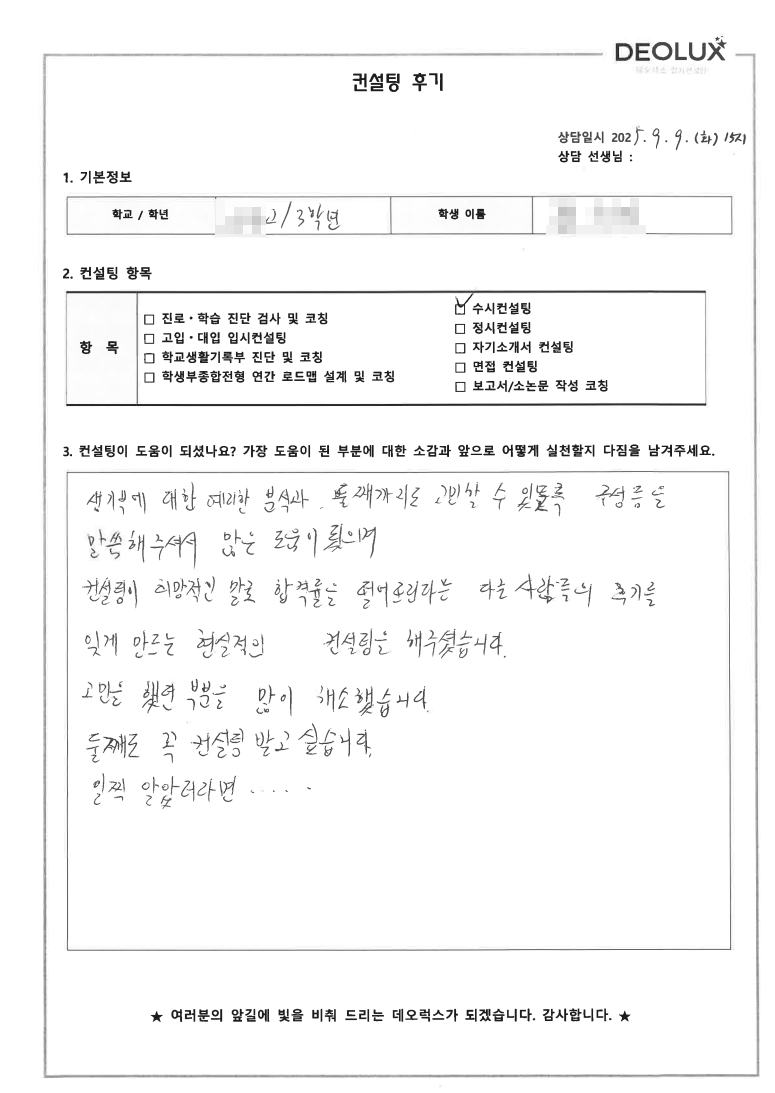 DEOLUX
컨설팅 후기
상담일시 2025. 9. 9. (화) 15시
상담 선생님 :
1. 기본정보
학교 / 학년 고/3학년 학생 이름
2. 컨설팅 항목
항 목
□ 진로·학습 진단 검사 및 코칭
□ 고입·대입 입시컨설팅
□ 학교생활기록부 진단 및 코칭
□ 학생부종합전형 연간 로드맵 설계 및 코칭
☑ 수시컨설팅
□ 정시컨설팅
□ 자기소개서 컨설팅
□ 면접 컨설팅
□ 보고서/소논문 작성 코칭
3. 컨설팅이 도움이 되셨나요? 가장 도움이 된 부분에 대한 소감과 앞으로 어떻게 실천할지 다짐을 남겨주세요.
생기부에 대한 예리한 분석과, 둘째까지도 고민할 수 있도록 구성 등을
말씀해주셔서 많은 도움이 됬으며
컨설팅이 희망적인 말로 합격률을 떨어뜨린다는 다른 사람들의 후기를
잊게 만드는 현실적인 컨설팅을 해주셨습니다.
고민을 했던 부분을 많이 해소했습니다.
둘째도 꼭 컨설팅 받고 싶습니다.
일찍 알았더라면 ·····
★ 여러분의 앞길에 빛을 비춰 드리는 데오럭스가 되겠습니다. 감사합니다. ★